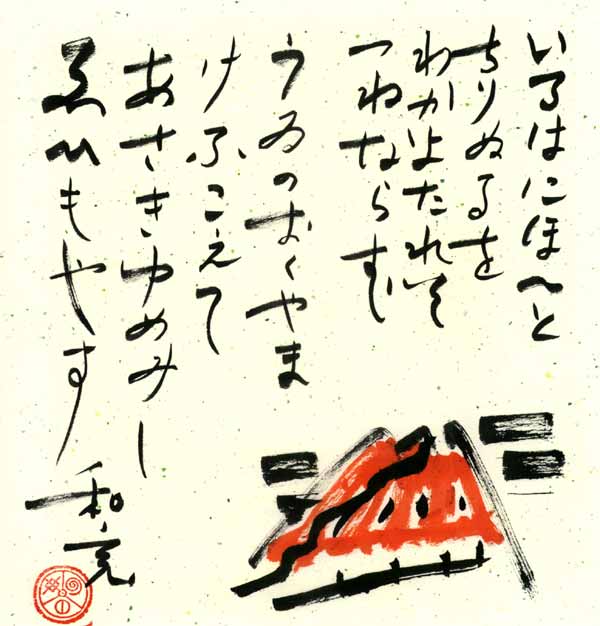 いろはにほへと
ちりぬるを
わかよたれそ
つねならむ
うゐのおくやま
けふこえて
あさきゆめみし
ゑひもせす
和